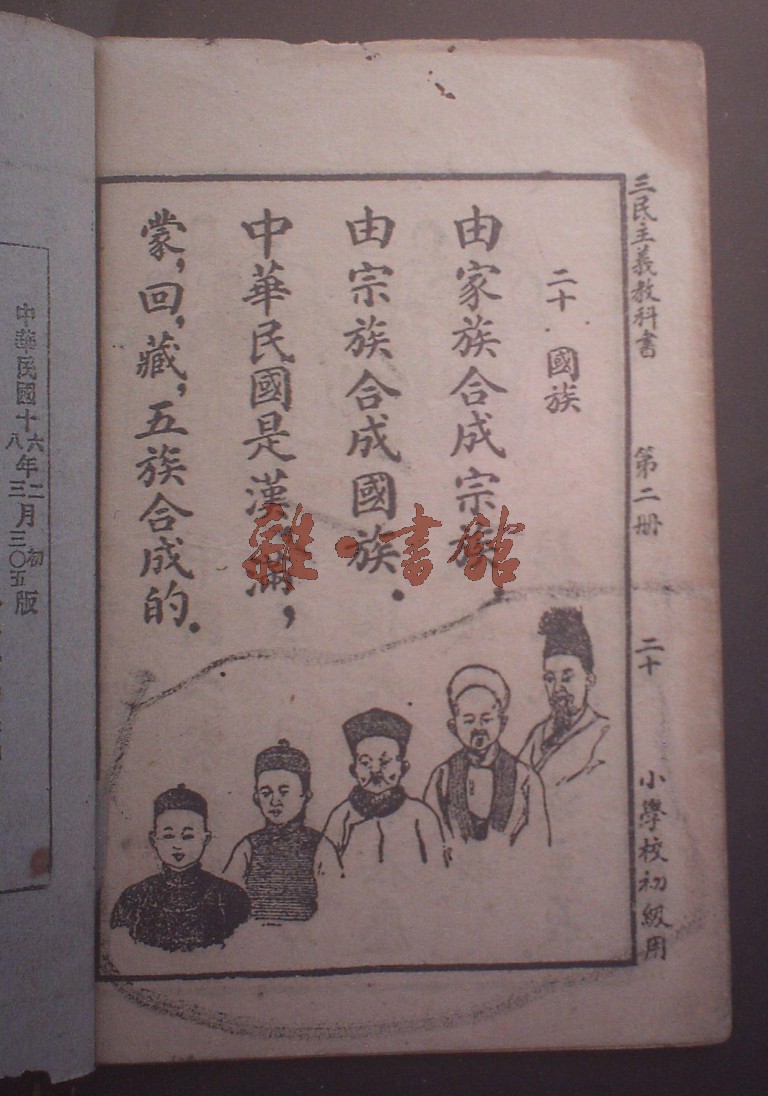 三民主義教科書 第二册 二十 小學校初級用
二十 國族
由家族合成宗族.
由宗族合成國族.
中華民國是漢,滿,
蒙,回,藏,五族合成的.
雜·書館
中華民國十六年二月初版
八 三 三〇五